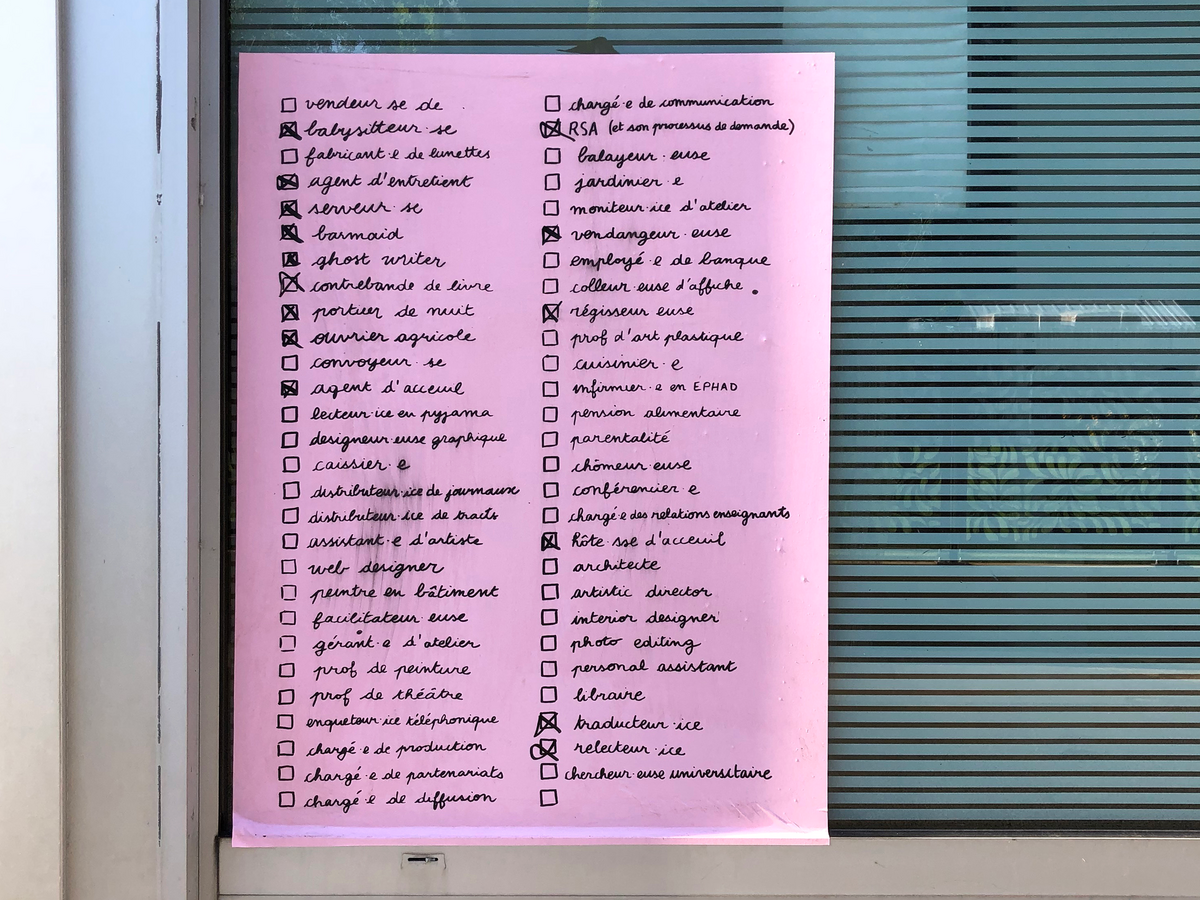 vendeur·se de
babysitteur·se
fabricant·e de lunettes
agent d'entretient
serveur·se
barmaid
ghost writer
contrebande de livre
portier de nuit
ouvrier agricole
convoyeur·se
agent d'acceuil
lecteur·ice en pyjama
designeur·euse graphique
caissier·e
distributeur·ice de journaux
distributeur·ice de tracts
assistant·e d'artiste
web designer
peintre en bâtiment
facilitateur·euse
gérant·e d'atelier
prof de peinture
prof de théâtre
enqueteur·ice téléphonique
chargé·e de production
chargé·e de partenariats
chargé·e de diffusion
chargé·e de communication
RSA (et son processus de demande)
balayeur·euse
jardinier·e
moniteur·ice d'atelier
vendangeur·euse
employé·e de banque
colleur·euse d'affiche
régisseur·euse
prof d'art plastique
cuisinier·e
infirmier·e en EPHAD
pension alimentaire
parentalité
chômeur·euse
conférencier·e
chargé·e des relations enseignants
hôte·sse d'acceuil
architecte
artistic director
interior designer
photo editing
personal assistant
libraire
traducteur·ice
relecteur·ice
chercheur·euse universitaire